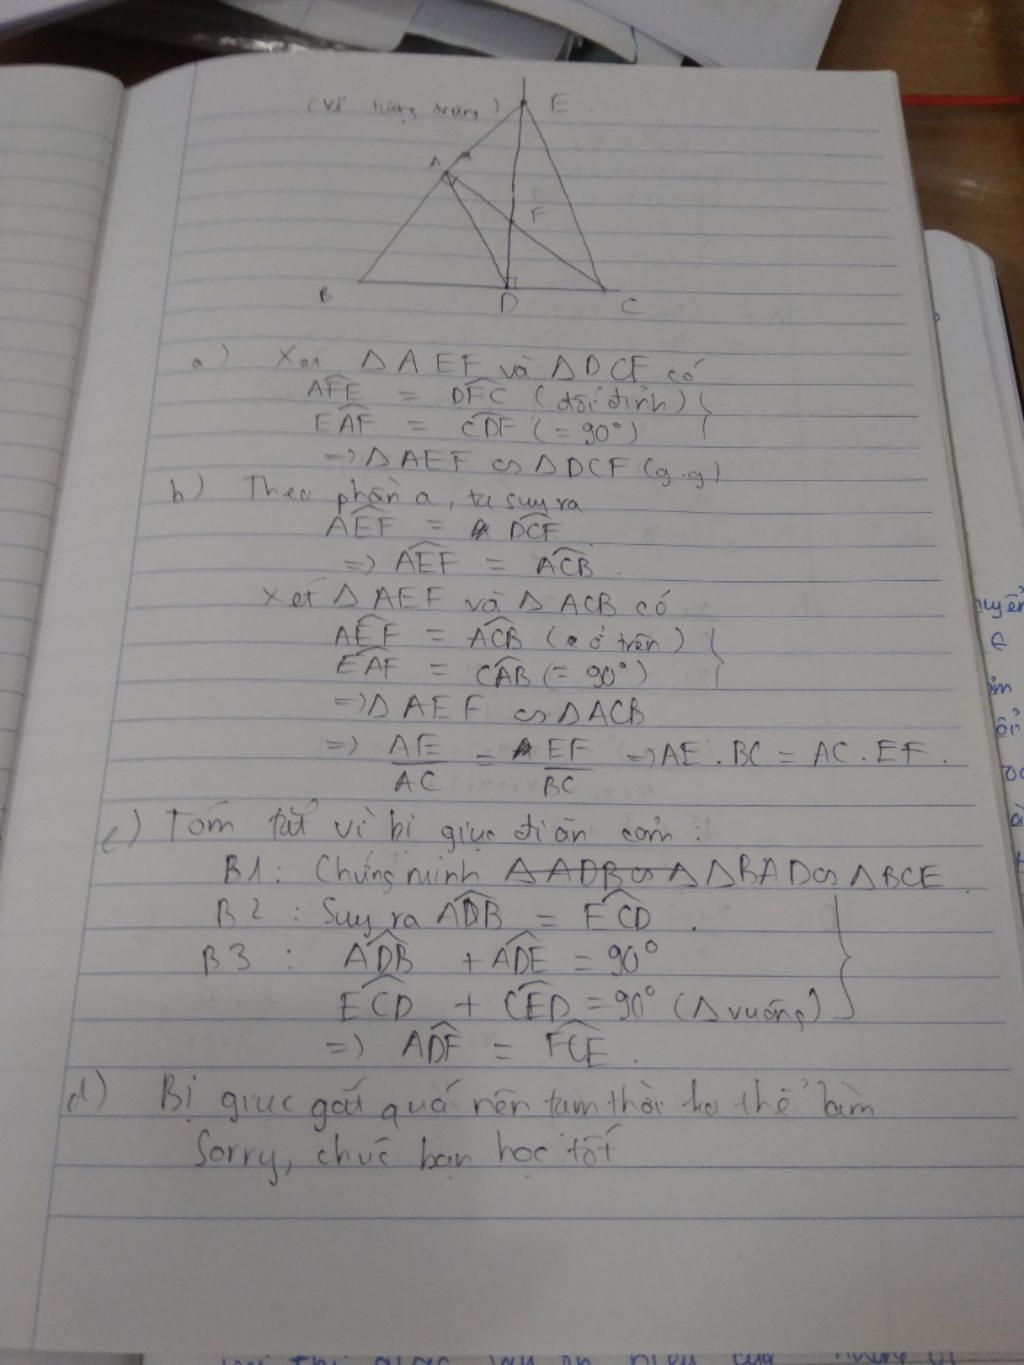 (Vẽ tượng trưng)
E
A
F
B
D
C
a) Xét ΔAEF và ΔDCF có
AFE = DFC (đối đỉnh)
EAF = CDF (= 90°)
=> ΔAEF ∽ ΔDCF (g.g)
b) Theo phần a, ta suy ra
AEF = DCF
=> AEF = ACB
Xét ΔAEF và ΔACB có
AEF = ACB (ở trên)
EAF = CAB (= 90°)
=> ΔAEF ∽ ΔACB
=> AE/AC = EF/BC => AE.BC = AC.EF.
c) Tóm tắt vì bị giục đi ăn cơm:
B1: Chứng minh ΔBAD ∽ ΔBCE
B2: Suy ra ADB = ECD.
B3: ADB + ADE = 90°
ECD + CED = 90° (Δ vuông)
=> ADF = FCE.
d) Bị giục gắt quá nên tạm thời ko thể làm
Sorry, chúc bạn học tốt